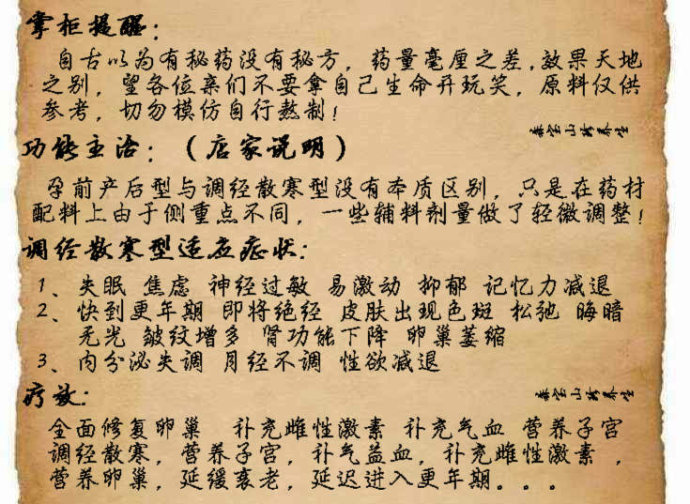 掌柜提醒：
自古以为有秘药没有秘方，药量毫厘之差，效果天地
之别，望各位亲们不要拿自己生命开玩笑，原料仅供
参考，切勿模仿自行熬制！
功能主治：（店家说明）
孕前产后型与调经散寒型没有本质区别，只是在药材
配料上由于侧重点不同，一些辅料剂量做了轻微调整！
调经散寒型适应症状：
1、失眠 焦虑 神经过敏 易激动 抑郁 记忆力减退
2、快到更年期 即将绝经 皮肤出现色斑 松弛 晦暗
无光 皱纹增多 肾功能下降 卵巢萎缩
3、内分泌失调 月经不调 性欲减退
疗效：
全面修复卵巢 补充雌性激素 补充气血 营养子宫
调经散寒，营养子宫，补气益血，补充雌性激素，
营养卵巢，延缓衰老，延迟进入更年期。。。